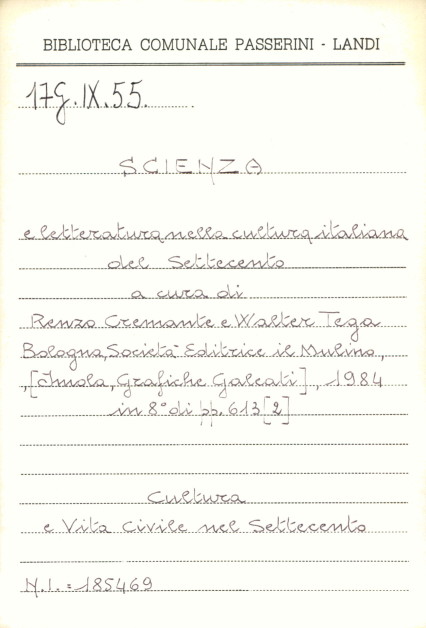 BIBLIOTECA COMUNALE PASSERINI - LANDI
17G.IX.55.
SCIENZA
e letteratura nella cultura italiana
del Settecento
a cura di
Renzo Cremante e Walter Tega
Bologna, Società Editrice il Mulino,
,[Imola, Grafiche Galeati], 1984
in 8° di pp. 613[2]
Cultura
e Vita Civile nel Settecento
N.I. = 185469